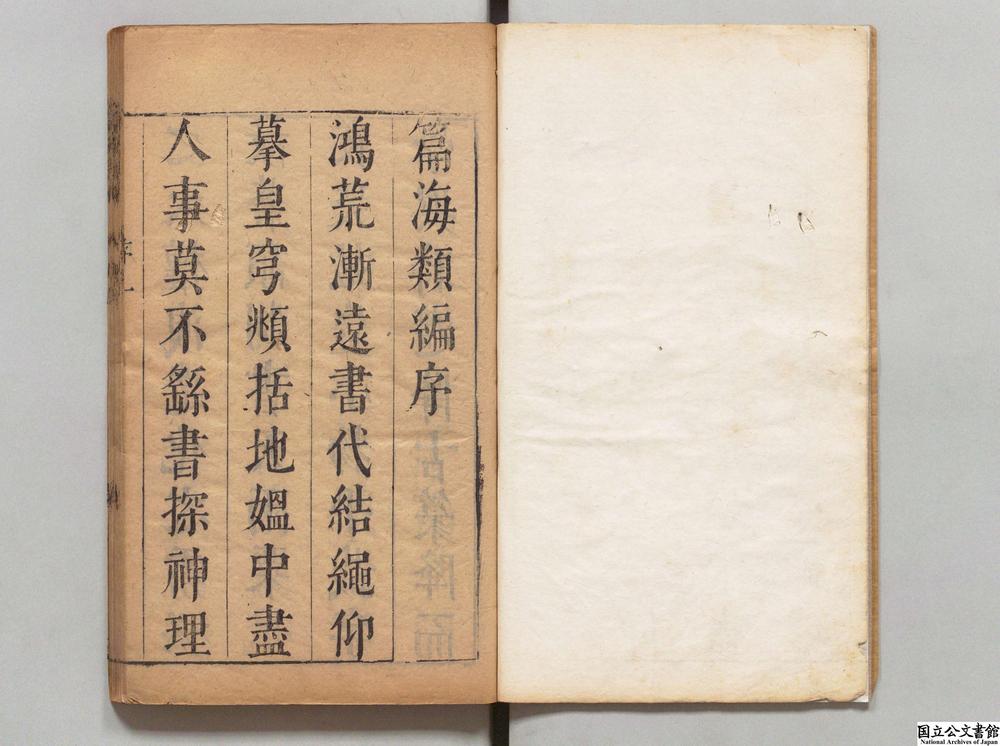 篇海類編序
鴻荒漸遠書代結繩仰
摹皇穹頫括地媼中盡
人事莫不繇書探神理
序
一
国立公文書館
National Archives of Japan